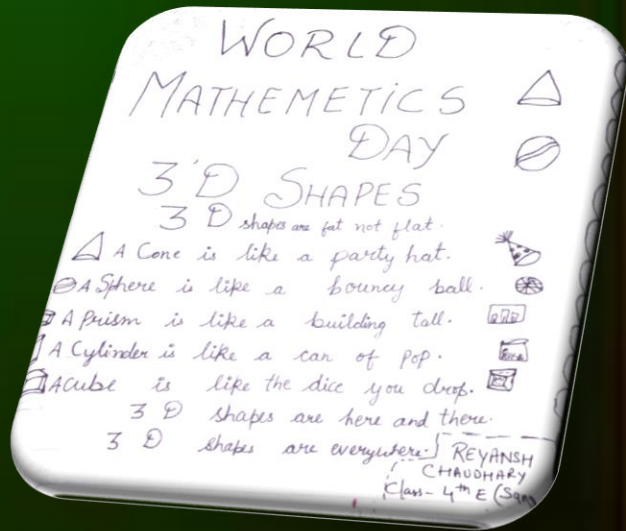 WORLD
MATHEMETICS
DAY
3'D SHAPES
3 D shapes are fat not flat.
A Cone is like a party hat.
A Sphere is like a bouncy ball.
A Prism is like a building tall.
A Cylinder is like a can of pop.
A cube is like the dice you drop.
3 D shapes are here and there.
3 D shapes are everywhere.
REYANSH
CHAUDHARY
Class- 4th E